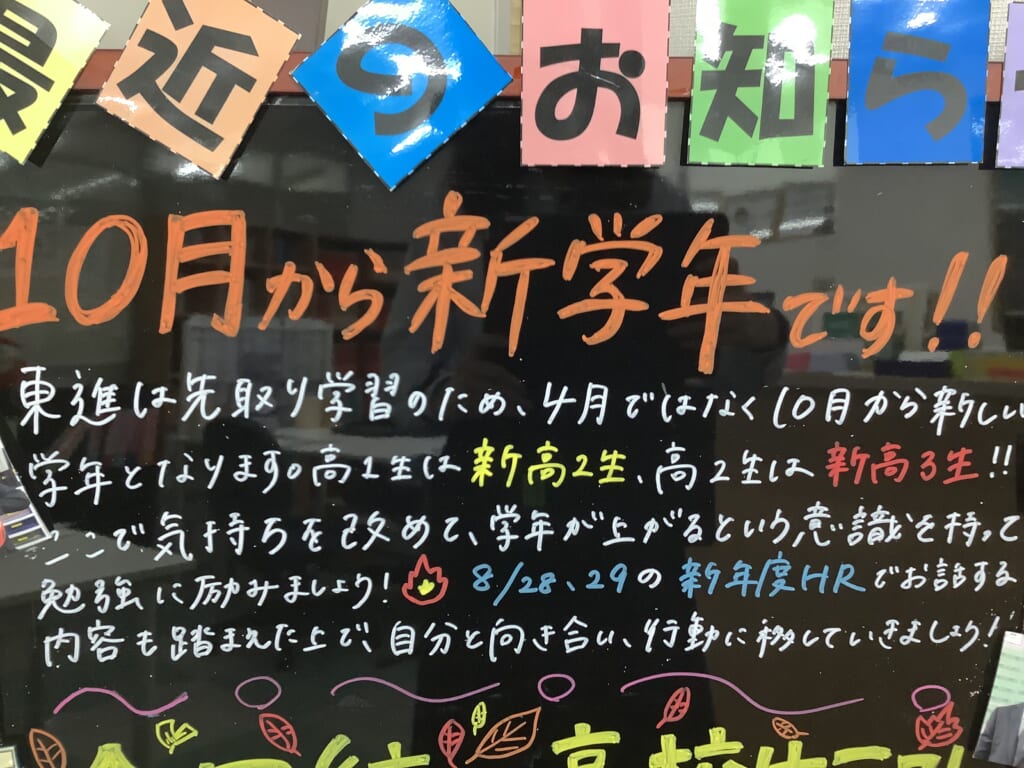 最近のお知ら
10月から新学年です!!
東進は先取り学習のため、4月ではなく10月から新しい
学年となります。高1生は新高2生、高2生は新高3生!!
ここで気持ちを改めて、学年が上がるという意識を持って
勉強に励みましょう! 8/28、29の新年度HRでお話する
内容も踏まえた上で、自分と向き合い、行動に移していきましょう!